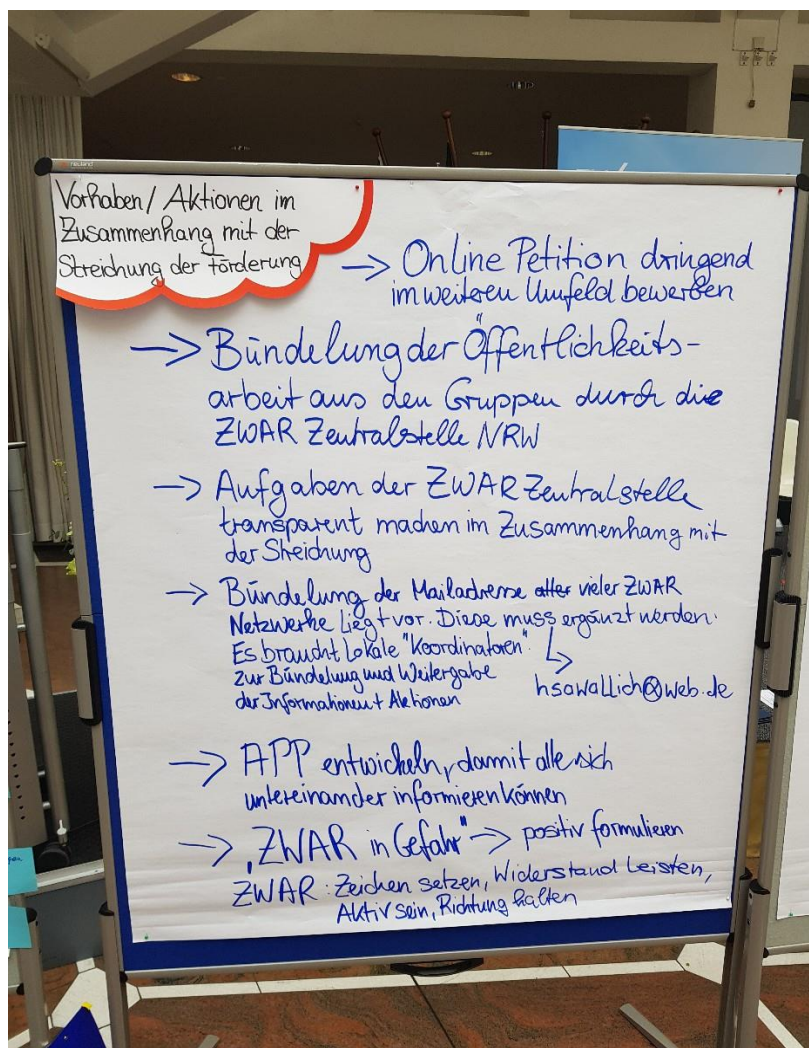 Vorhaben / Aktionen im
Zusammenhang mit der
Streichung der Förderung
→ Online Petition dringend
im weiteren Umfeld bewerben
→ Bündelung der Öffentlichkeits-
arbeit aus den Gruppen durch die
ZWAR Zentralstelle NRW
→ Aufgaben der ZWAR Zentralstelle
transparent machen im Zusammenhang mit
der Streichung
→ Bündelung der Mailadresse aller vieler ZWAR
Netzwerke liegt vor. Diese muss ergänzt werden.
Es braucht Lokale "Koordinatoren"
zur Bündelung und Weitergabe
der Informationen + Aktionen
hsawallich@web.de
→ APP entwickeln, damit alle sich
untereinander informieren können
→ „ZWAR in Gefahr" → positiv formulieren
ZWAR: Zeichen setzen, Widerstand Leisten,
Aktiv sein, Richtung halten